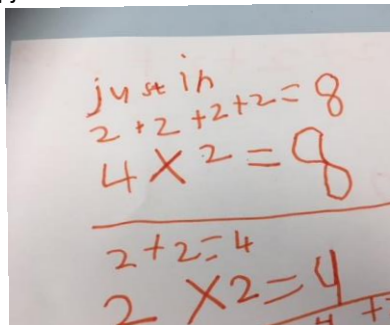 justin
2+2+2+2=8
4×2=8
2+2=4
2×2=4